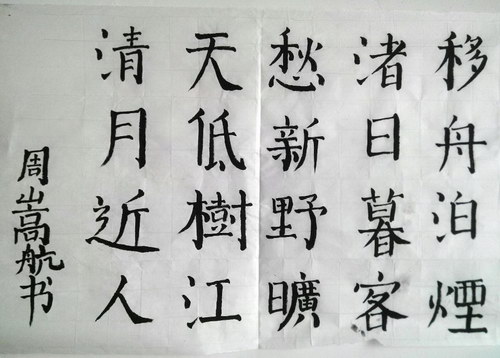 移舟泊煙
渚日暮客
愁新野曠
天低樹江
清月近人
周嵩航书